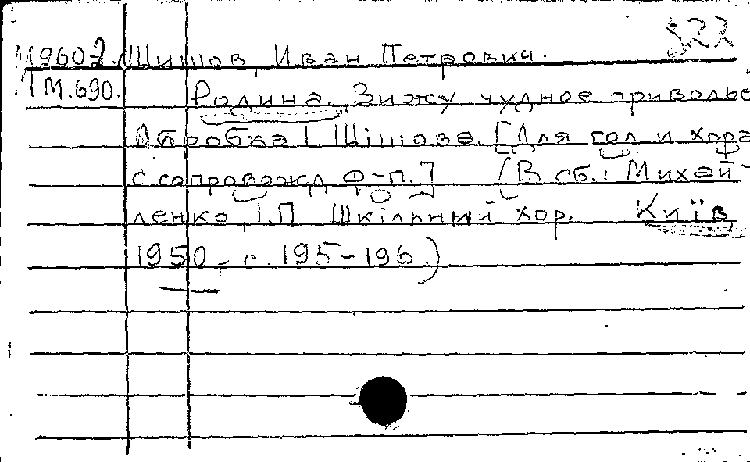 522
М9602. Шишов, Иван Петрович.
1М.690. Родина. Вижу чудное приволье
Обробка І. Шішова. [Для гол и хора
с сопровожд. ф-п.] (В сб.: Михай-
ленко, І.П. Шкільний хор. Київ
1950, с. 195-196.)